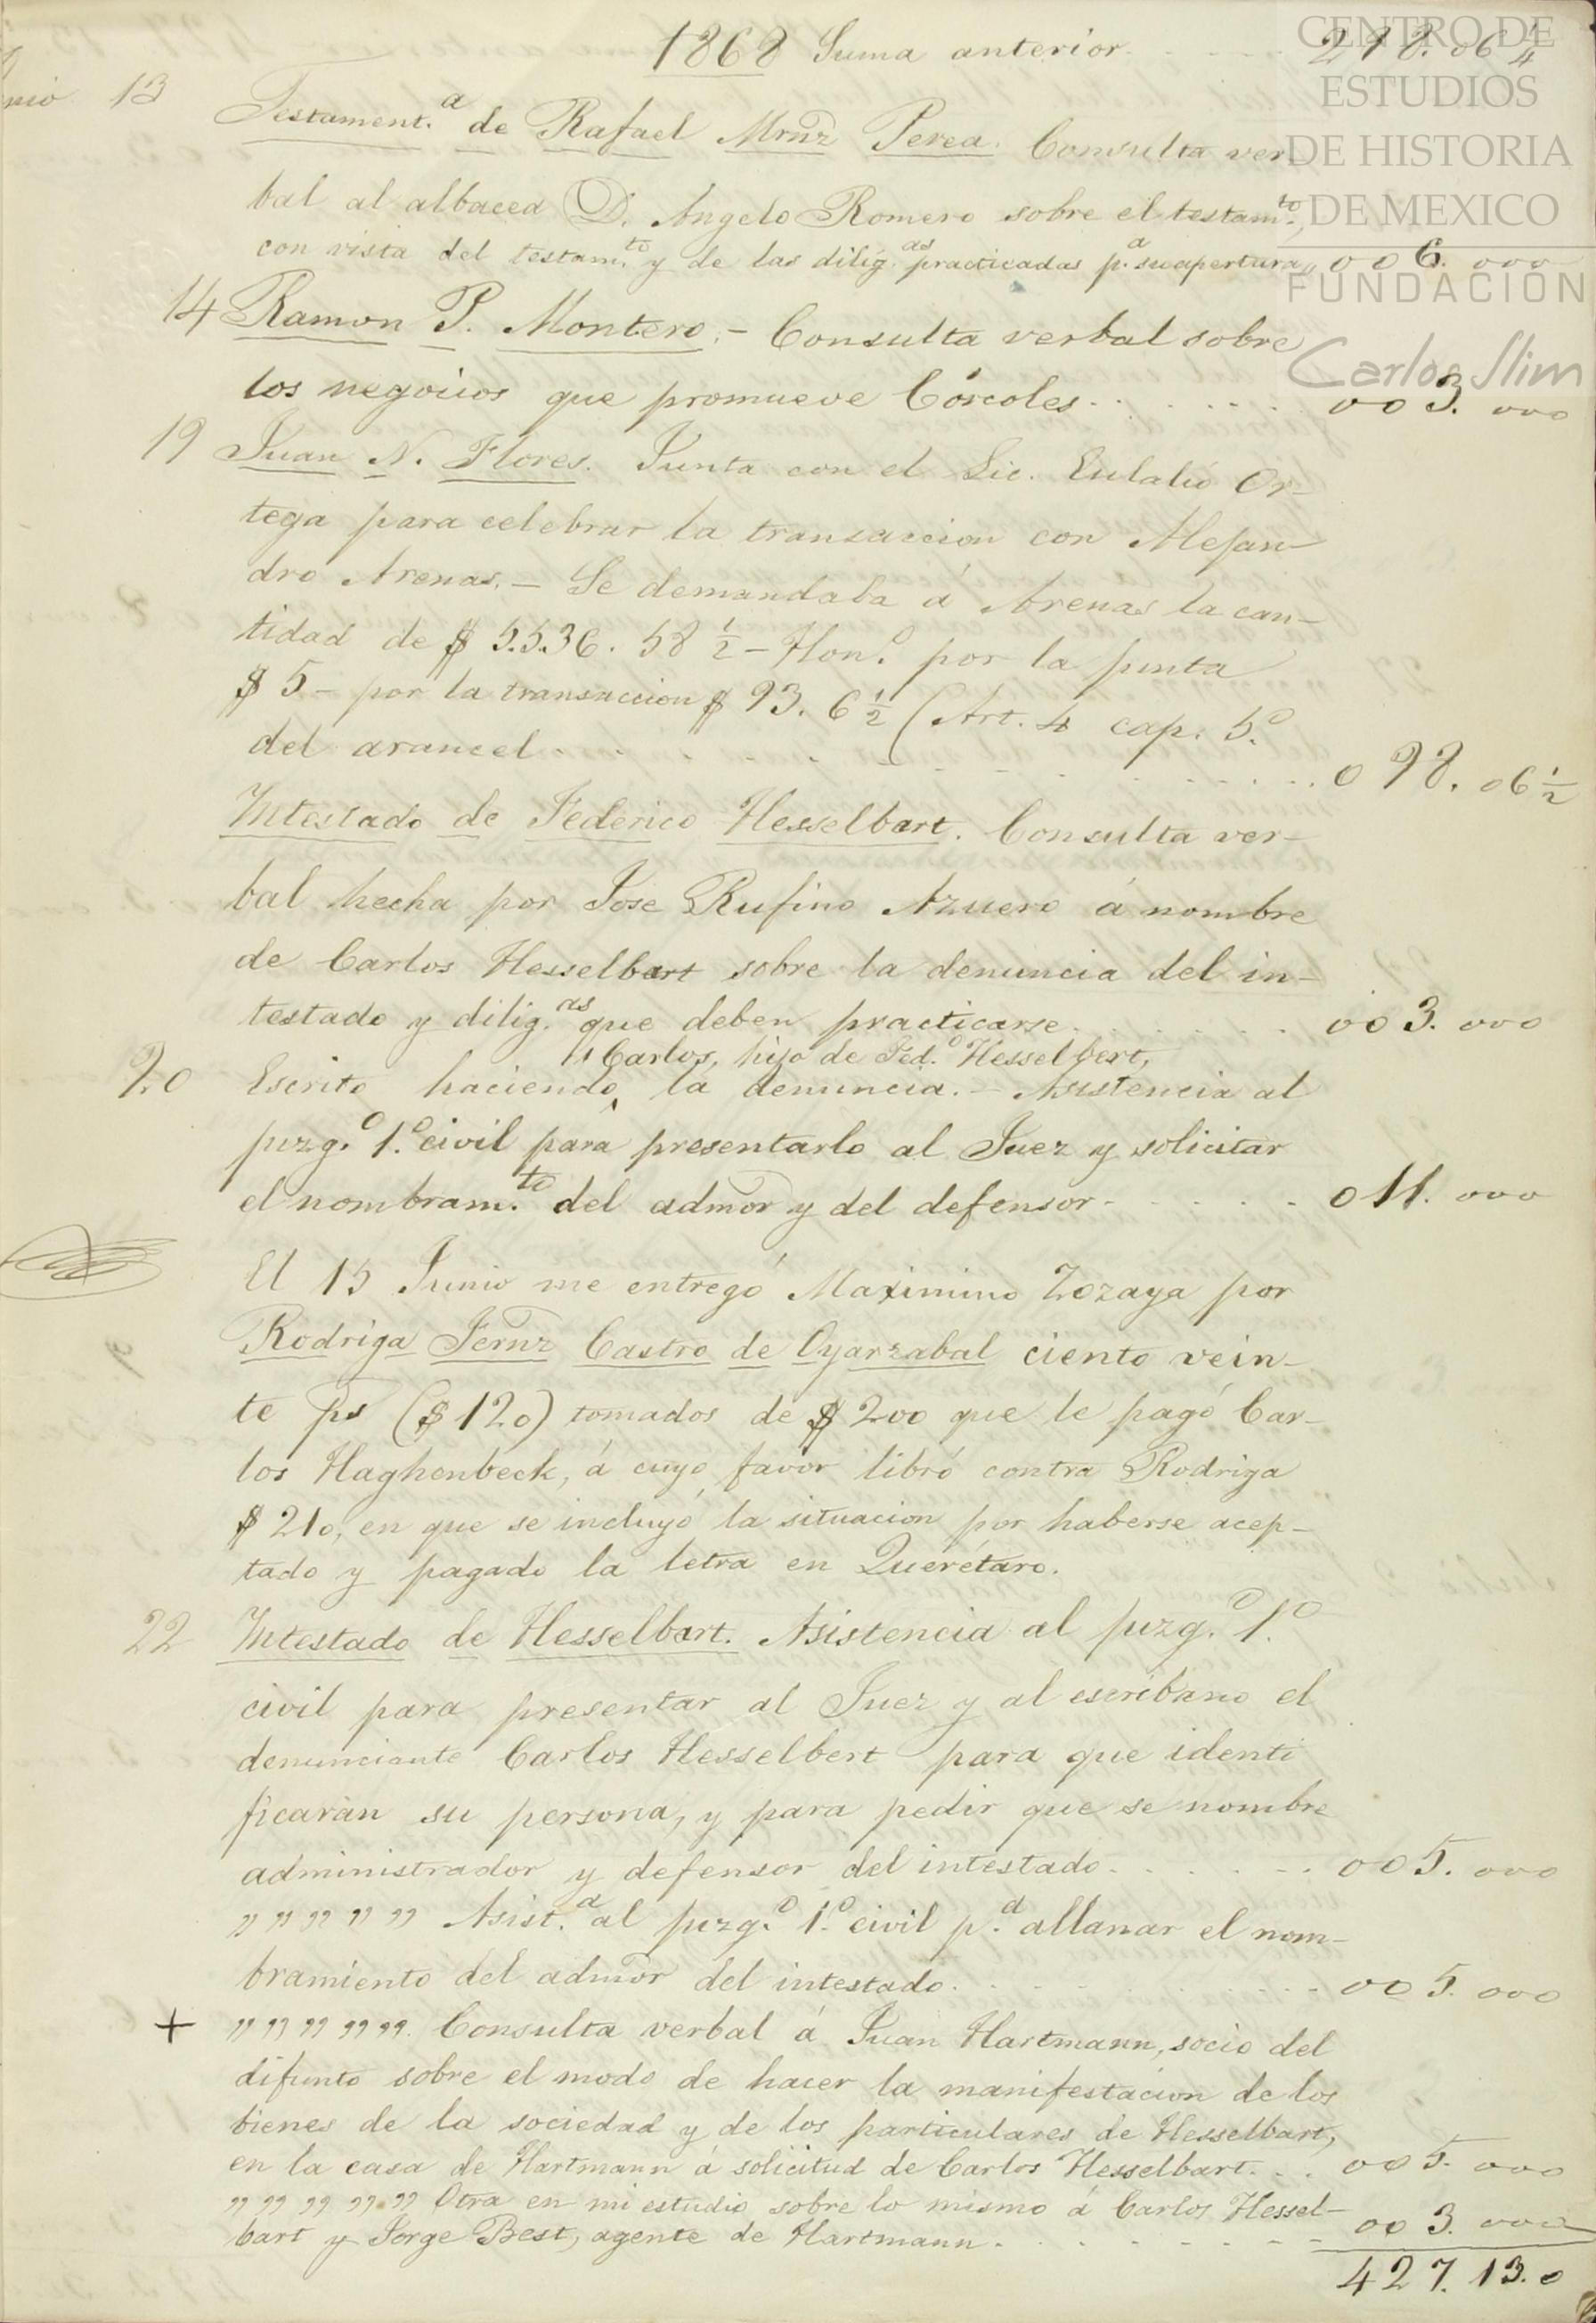 1868 Suma anterior - - - - 288. 06 1/4
nio 13 Testament.ª de Rafael Mrnz Perea. Consulta ver-
bal al albacea D. Angelo Romero sobre el testam.to,
con vista del testam.to y de las dilig.as practicadas p.ª su apertura,, 006. 000
14 Ramon P. Montero. - Consulta verbal sobre
los negocios que promueve Córcoles - - - - - 003. 000
19 Juan N. Flores. Junta con el Lic. Eulalio Or-
tega para celebrar la transaccion con Alejan-
dro Arenas. - Se demandaba á Arenas la can-
tidad de $ 5.536. 58 1/2 - Hon.º por la junta
$ 5 - por la transaccion $ 93. 6 1/2 (Art. 4 cap. 5.º
del arancel - - - - - - - - - - 098. 06 1/2
Intestado de Federico Hesselbart. Consulta ver-
bal hecha por Jose Rufino Azuero á nombre
de Carlos Hesselbart sobre la denuncia del in-
testado y dilig.as que deben practicarse - - - - - 003. 000
Carlos, hijo de Fed.º Hesselbert,
20 Escrito haciendo la denuncia. - Asistencia al
juzg.º 1.º civil para presentarlo al Juez y solicitar
el nombram.to del admor y del defensor - - - - - 011. 000
El 15 Junio me entregó Maximino Zozaya por
Rodriga Fernz Castro de Oyarzabal ciento vein-
te ps ($ 120) tomados de $ 200 que le pagó Car-
los Haghenbeck, á cuyo favor libró contra Rodriga
$ 210, en que se incluyó la situacion por haberse acep-
tado y pagado la letra en Querétaro.
22 Intestado de Hesselbart. Asistencia al juzg.º 1.º
civil para presentar al Juez y al escribano el
denunciante Carlos Hesselbert para que identi
ficaran su persona, y para pedir que se nombre
administrador y defensor del intestado - - - - - 005. 000
,, ,, ,, ,, ,, Asist.ª al juzg.º 1.º civil p.ª allanar el nom-
bramiento del admor del intestado - - - - - 005. 000
+ ,, ,, ,, ,, ,, Consulta verbal á Juan Hartmann, socio del
difunto sobre el modo de hacer la manifestacion de los
bienes de la sociedad y de los particulares de Hesselbart,
en la casa de Hartmann á solicitud de Carlos Hesselbart. . . 005. 000
,, ,, ,, ,, ,, Otra en mi estudio sobre lo mismo á Carlos Hessel-
bart y Jorge Best, agente de Hartmann - - - - - 003. 000
427. 13. 0
CENTRO DE
ESTUDIOS
DE HISTORIA
DE MEXICO
FUNDACIÓN
Carlos Slim